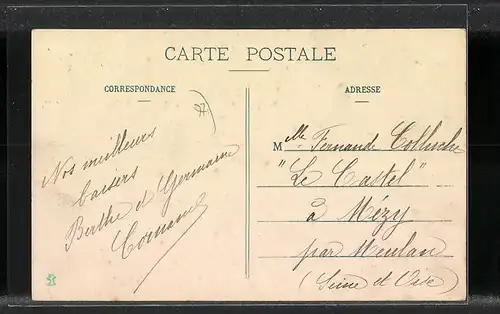 CARTE POSTALE
CORRESPONDANCE
Nos meilleurs
baisers
Berthe et Germaine
ADRESSE
Mlle Fernande
"Le Castel"
à Mézy
par Meulan
(Seine et Oise)